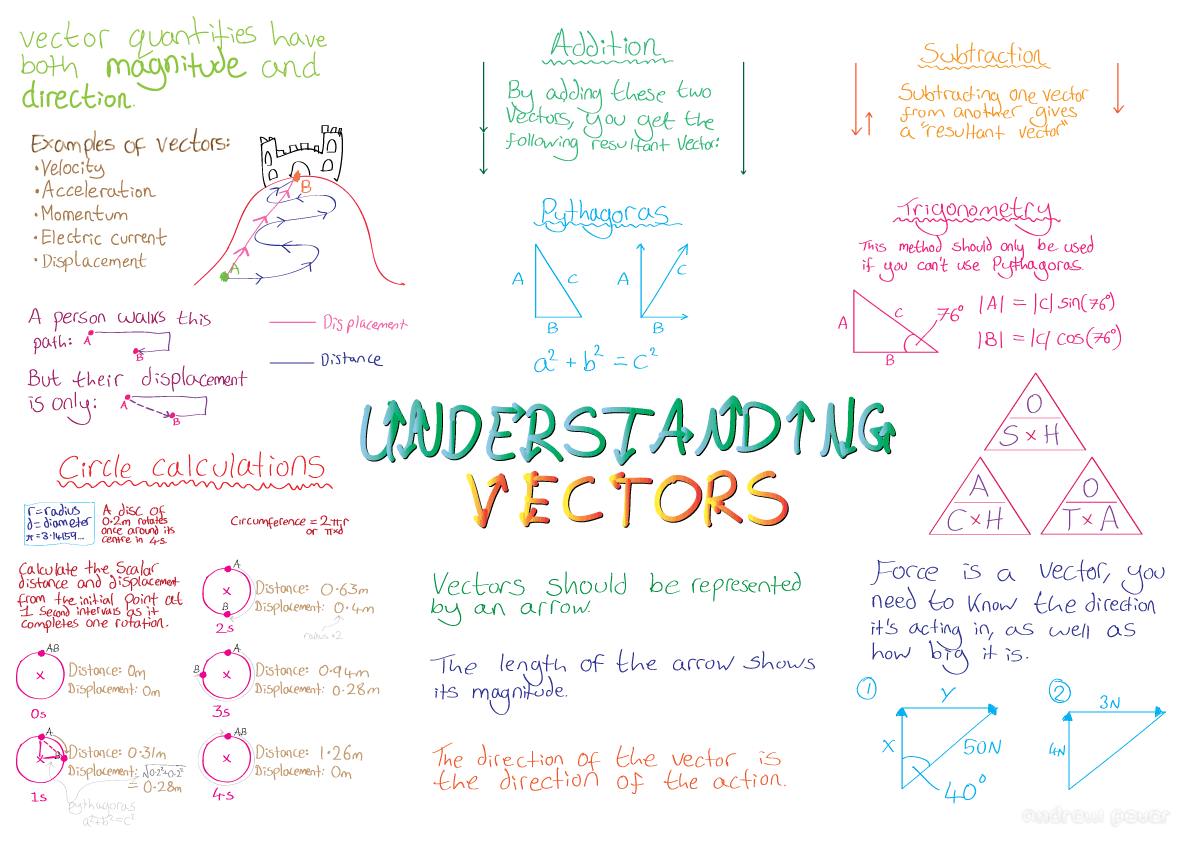 vector quantities have
both magnitude and
direction.
Examples of vectors:
•Velocity
•Acceleration
•Momentum
•Electric current
•Displacement
B
A
A person walks this
path:
A
B
Displacement
Distance
But their displacement
is only:
A
B
Addition
By adding these two
vectors, you get the
following resultant vector:
Subtraction
Subtracting one vector
from another gives
a "resultant vector"
Pythagoras
A
C
B
A
C
B
a² + b² = c²
Trigonometry
This method should only be used
if you can't use Pythagoras.
A
C
B
76°
|A| = |C| sin(76°)
|B| = |C| cos(76°)
O
S × H
A
C × H
O
T × A
UNDERSTANDING
VECTORS
Circle calculations
r = radius
d = diameter
π = 3.14159...
A disc of
0.2m rotates
once around its
centre in 4s.
Circumference = 2πr
or π×d
Calculate the Scalar
distance and displacement
from the initial point at
1 second intervals as it
completes one rotation.
AB
Distance: 0m
Displacement: 0m
0s
A
B
Distance: 0.31m
Displacement: √0.2²+0.2²
= 0.28m
1s
pythagoras
a²+b²=c²
A
B
Distance: 0.63m
Displacement: 0.4m
radius × 2
2s
A
B
Distance: 0.94m
Displacement: 0.28m
3s
AB
Distance: 1.26m
Displacement: 0m
4s
Vectors should be represented
by an arrow.
The length of the arrow shows
its magnitude.
The direction of the vector is
the direction of the action.
Force is a vector, you
need to know the direction
it's acting in, as well as
how big it is.
1
Y
X
50N
40°
2
3N
4N
andrew power